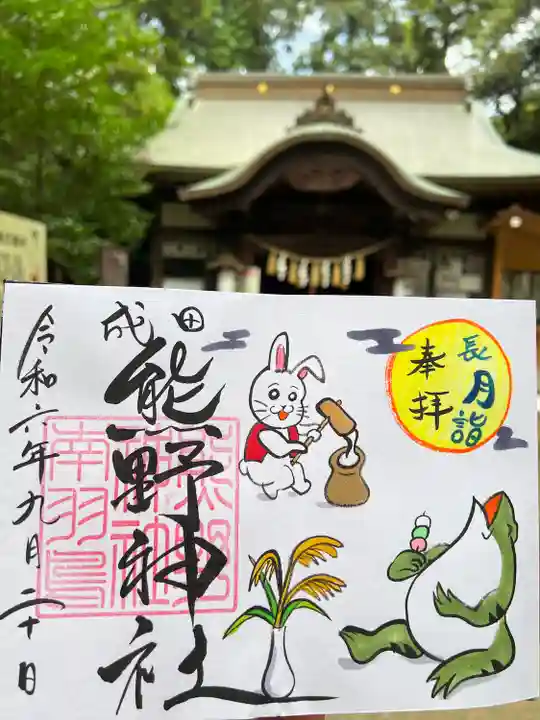 長月詣
奉拝
成田
熊野神社
南羽鳥
令和六年九月二十日